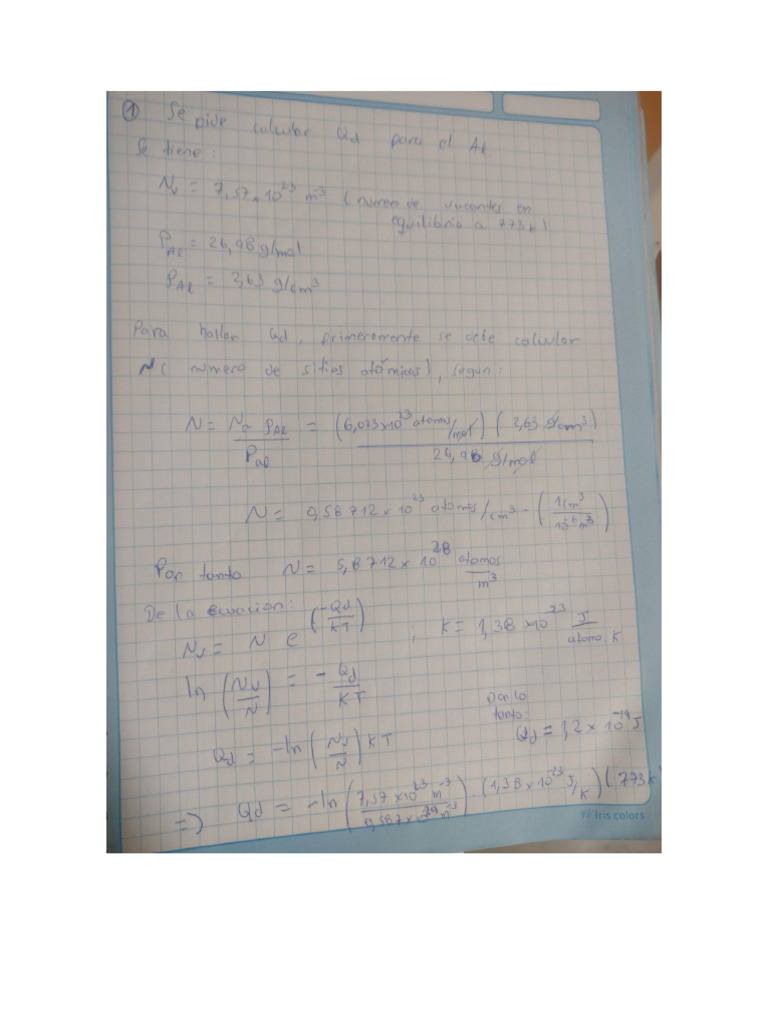 ① Se pide calcular Qd para el Al
Se tiene:
Nv = 7,57 x 10^23 m^-3 (numero de vacantes en
equilibrio a 773k)
P_Al = 26,98 g/mol
ρ_Al = 2,63 g/cm^3
Para hallar Qd, primeramente se debe calcular
N ( número de sitios atómicos), según:
N = Na ρ_Al / P_Al = (6,023x10^23 atomos/mol) (2,63 g/cm^3) / 26,98 g/mol
N = 0,58712 x 10^23 atomos/cm^3 · (1cm^3 / 10^-6 m^3)
Por tanto N = 5,8712 x 10^28 atomos / m^3
De la ecuacion:
Nv = N e^(-Qd / KT) ; K = 1,38 x10^-23 J / atomo.K
ln (Nv / N) = - Qd / KT
Qd = -ln (Nv / N) KT
por lo
tanto:
Qd = 1,2 x 10^-19 J
=> Qd = -ln (7,57 x10^23 m^-3 / 0,587x 29 m^-3) . (1,38 x 10^-23 J/K) (773k)
Iris colors